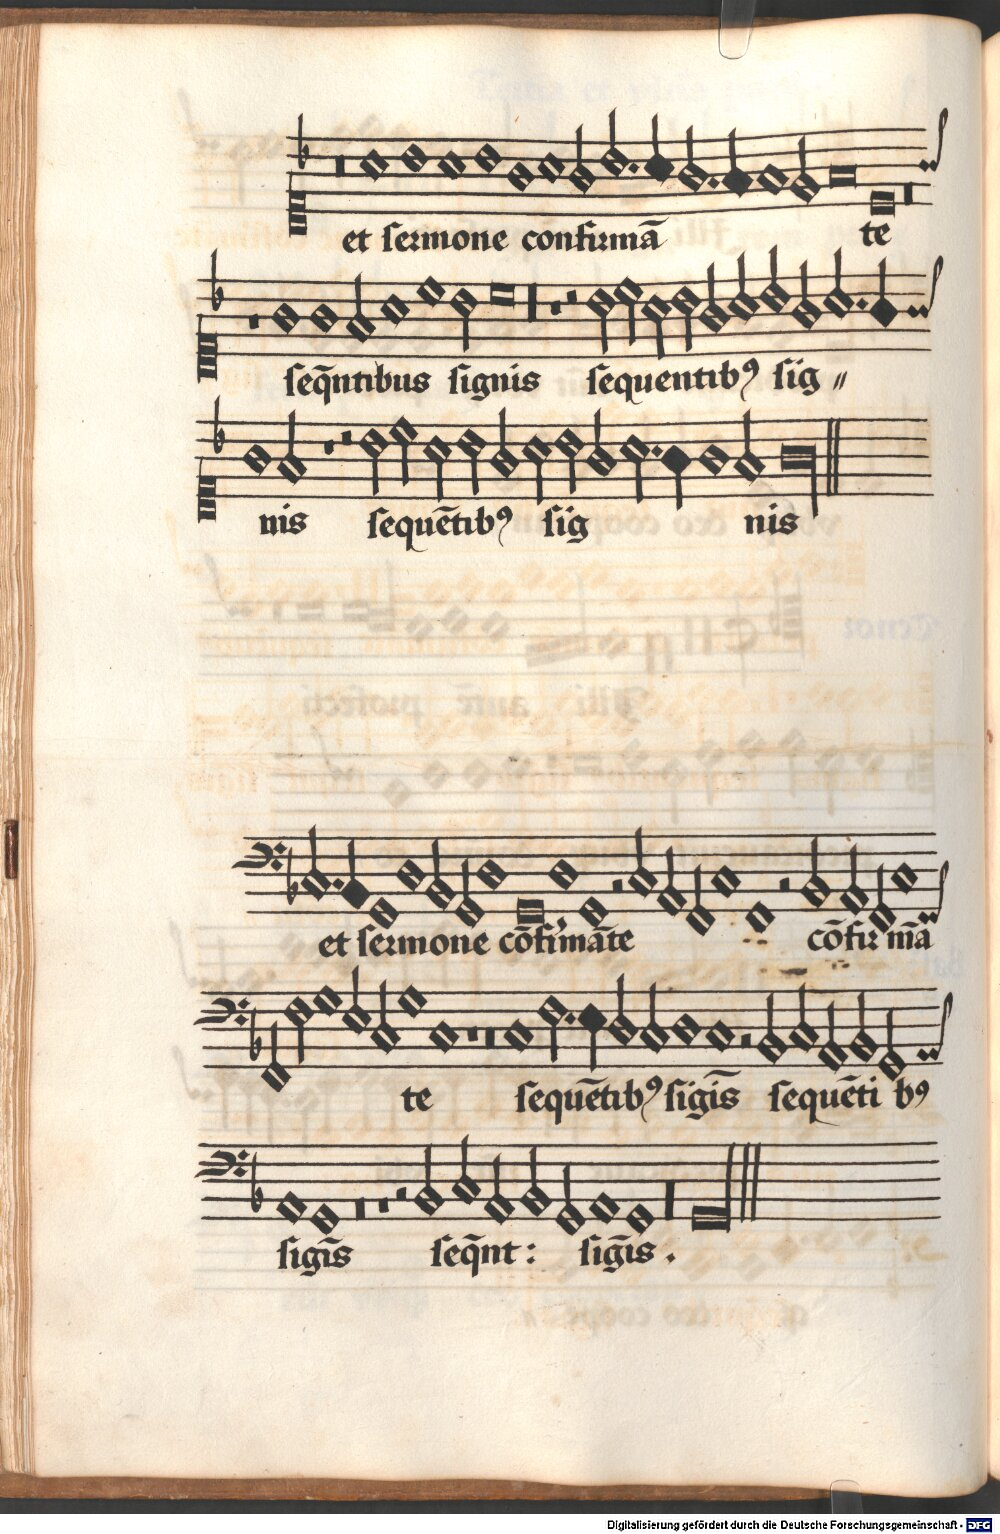 et sermone confirmā te
seq̄ntibus signis sequentibꝰ sig〃
nis sequētibꝰ sig nis
et sermone cōfirmāte cōfir mā
te sequētibꝰ sigīs sequēti bꝰ
sigīs seq̄nt: sigīs.
Digitalisierung gefördert durch die Deutsche Forschungsgemeinschaft - DFG